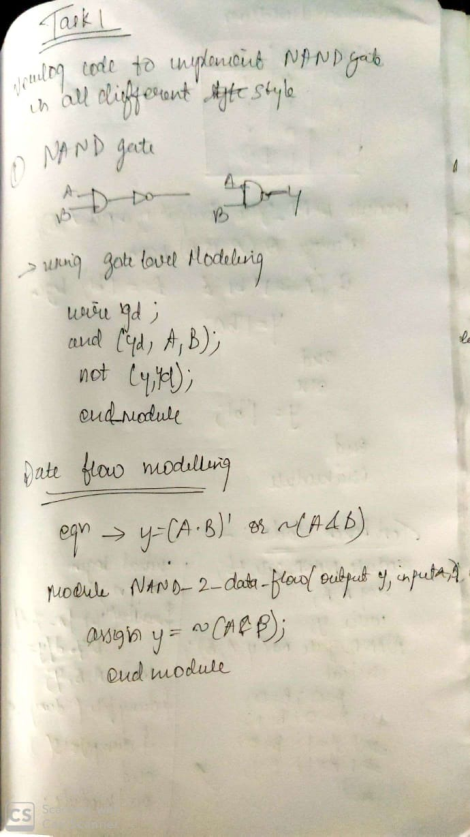 Task 1
Verilog code to implement NAND gate
in all different style
① NAND gate
A
B
A
B
y
> using gate level Modeling
wire yd ;
and (yd, A, B);
not (y, yd);
endmodule
Date flow modelling
eqn → y=(A·B)' or ~(A&B)
Module NAND_2_data_flow( output y, input A,
assign y = ~(A&B);
endmodule
CS